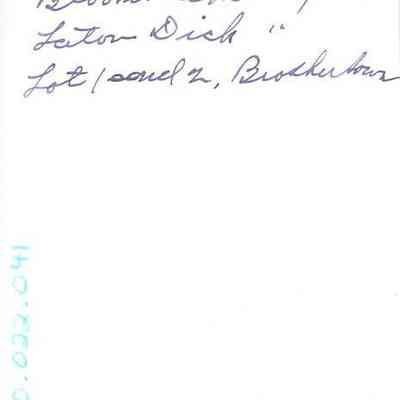 Laton Dick "
Lot 1 and 2, Brothertown
0.022.041